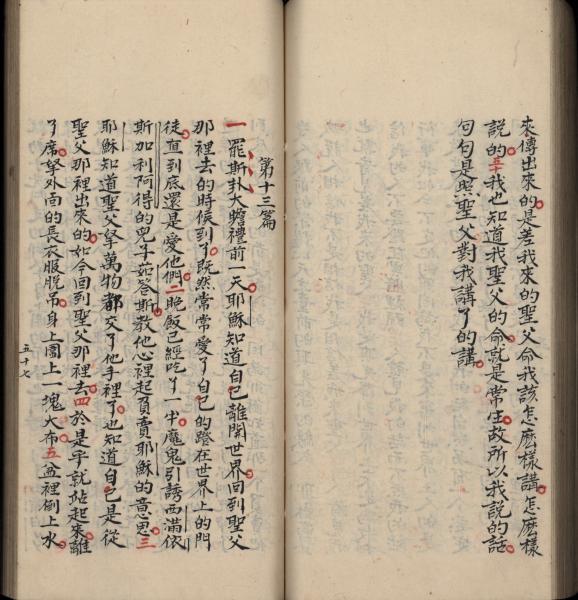 來傳出來的是差我來的聖父命我該怎麽樣講怎麽樣
說的五十我也知道我聖父的命就是常生故所以我說的話
句句是照聖父對我講了的講
第十三篇
一罷斯卦大瞻禮前一天耶穌知道自己離開世界回到聖父
那裡去的時候到了既然常常愛了自己的蹬在世界上的門
徒直到底還是愛他們二晚飯已經吃了一半魔鬼引誘西滿依
斯加利阿得的兒子茹答斯教他心裡起負賣耶穌的意思三
耶穌知道聖父拏萬物都交了他手裡了也知道自己是從
聖父那裡出來的如今回到聖父那裡去四於是乎就站起來離
了席拏外面的長衣服脫吊身上圍上一塊大布五盆裡倒上水
五十七